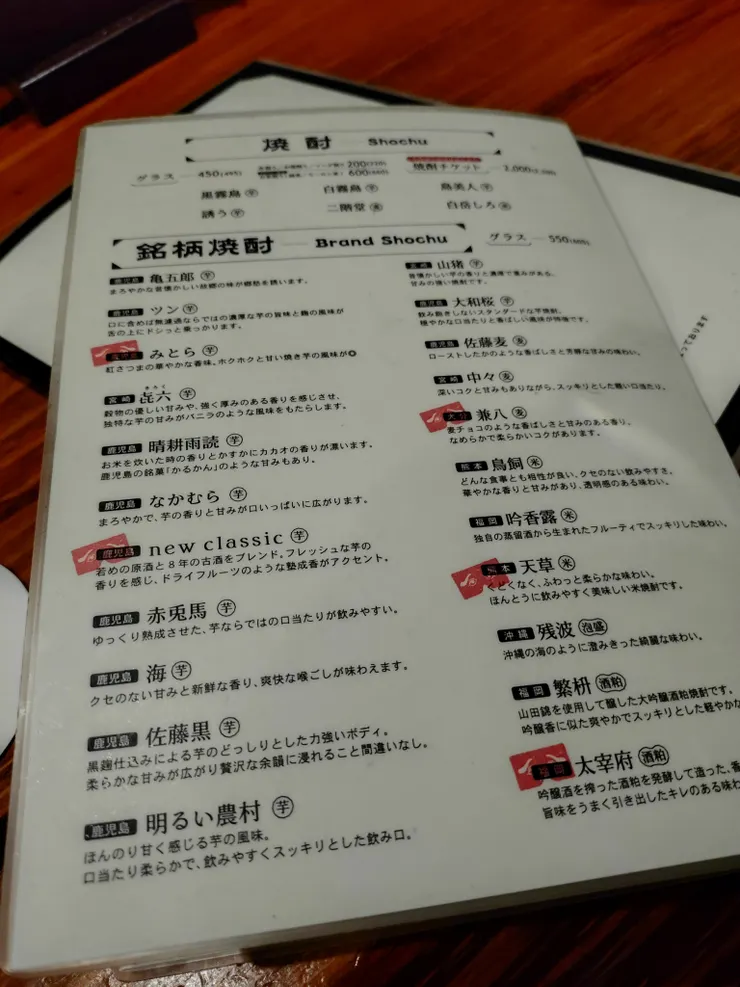 焼酎 Shochu
グラス 450(495)
200(220)
600(660)
焼酎チケット 3,000
黒霧島 芋 白霧島 芋 島美人 芋
誘う 芋 二階堂 麦 白岳しろ 米
銘柄焼酎 Brand Shochu グラス 550(605)
鹿児島 亀五郎 芋
まろやかな昔懐かしい故郷の味が郷愁を誘います。
鹿児島 ツン 芋
口に含めば無濾過ならではの濃厚な芋の旨味と麹の風味が
舌の上にドシっと乗っかります。
鹿児島 みとら 芋
紅さつまの華やかな香味。ホクホクと甘い焼き芋の風味が◎
きろく
宮崎 㐂六 芋
穀物の優しい甘みや、強く厚みのある香りを感じさせ、
独特な芋の甘みがバニラのような風味をもたらします。
鹿児島 晴耕雨読 芋
お米を炊いた時の香りとかすかにカカオの香りが漂います。
鹿児島の銘菓「かるかん」のような甘みもあり。
鹿児島 なかむら 芋
まろやかで、芋の香りと甘みが口いっぱいに広がります。
鹿児島 new classic 芋
若めの原酒と8年の古酒をブレンド。フレッシュな芋の
香りを感じ、ドライフルーツのような塾成香がアクセント。
鹿児島 赤兎馬 芋
ゆっくり熟成させた、芋ならではの口当たりが飲みやすい。
鹿児島 海 芋
クセのない甘みと新鮮な香り、爽快な喉ごしが味わえます。
鹿児島 佐藤黒 芋
黒麹仕込みによる芋のどっしりとした力強いボディ。
柔らかな甘みが広がり贅沢な余韻に浸れること間違いなし。
鹿児島 明るい農村 芋
ほんのり甘く感じる芋の風味。
口当たり柔らかで、飲みやすくスッキリとした飲み口。
宮崎 山猪 芋
昔懐かしい芋の香りと濃厚で重みがある、
甘みの強い焼酎です。
鹿児島 大和桜 芋
飲み飽きしないスタンダードな芋焼酎。
穏やかな口当たりと香ばしい風味が特徴です。
鹿児島 佐藤麦 麦
ローストしたかのような香ばしさと芳醇な甘みの味わい。
宮崎 中々 麦
深いコクと甘みもありながら、スッキリとした軽い口当たり。
大分 兼八 麦
麦チョコのような香ばしさと甘みのある香り。
なめらかで柔らかいコクがあります。
熊本 鳥飼 米
どんな食事とも相性が良い、クセのない飲みやすさ。
華やかな香りと甘みがあり、透明感のある味わい。
福岡 吟香露 米
独自の蒸留酒から生まれたフルーティでスッキリした味わい。
熊本 天草 米
くどくなく、ふわっと柔らかな味わい。
ほんとうに飲みやすく美味しい米焼酎です。
沖縄 残波 泡盛
沖縄の海のように澄みきった綺麗な味わい。
福岡 繁枡 酒粕
山田錦を使用して醸した大吟醸酒粕焼酎です。
吟醸香に似た爽やかでスッキリとした軽やかな
福岡 太宰府 酒粕
吟醸酒を搾った酒粕を発酵して造った、香
旨味をうまく引き出したキレのある味わ
っております